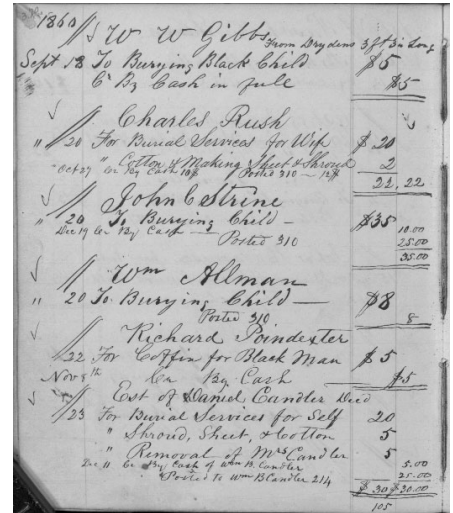 1860
W W Gibbs From Drydens 3 ft 3 in Long
Sept 18 To Burying Black Child $5
Cr By Cash in full $5
Charles Rush
" 20 For Burial Services for Wife $ 20
" Cotton & Making Sheet & Shroud 2
Oct 27 Cr By Cash Posted 310
22, 22
John C Strine
" 20 To Burying Child — $35
Dec 19 Cr By Cash 10.00
Posted 310 25.00
35.00
Wm Allman
" 20 To Burying Child — $8
Posted 310 8
Richard Poindexter
" 22 For Coffin for Black Man $ 5
Nov 8th Cr By Cash $5
Est of Daniel Candler Decd
" 23 For Burial Services for Self 20
" Shroud, Sheet, & Cotton 5
" Removal of Mrs Candler 5
Dec 11 Cr By Cash of Wm B. Candler 5.00
Posted to Wm B Candler 214 25.00
$ 30 $30.00
105